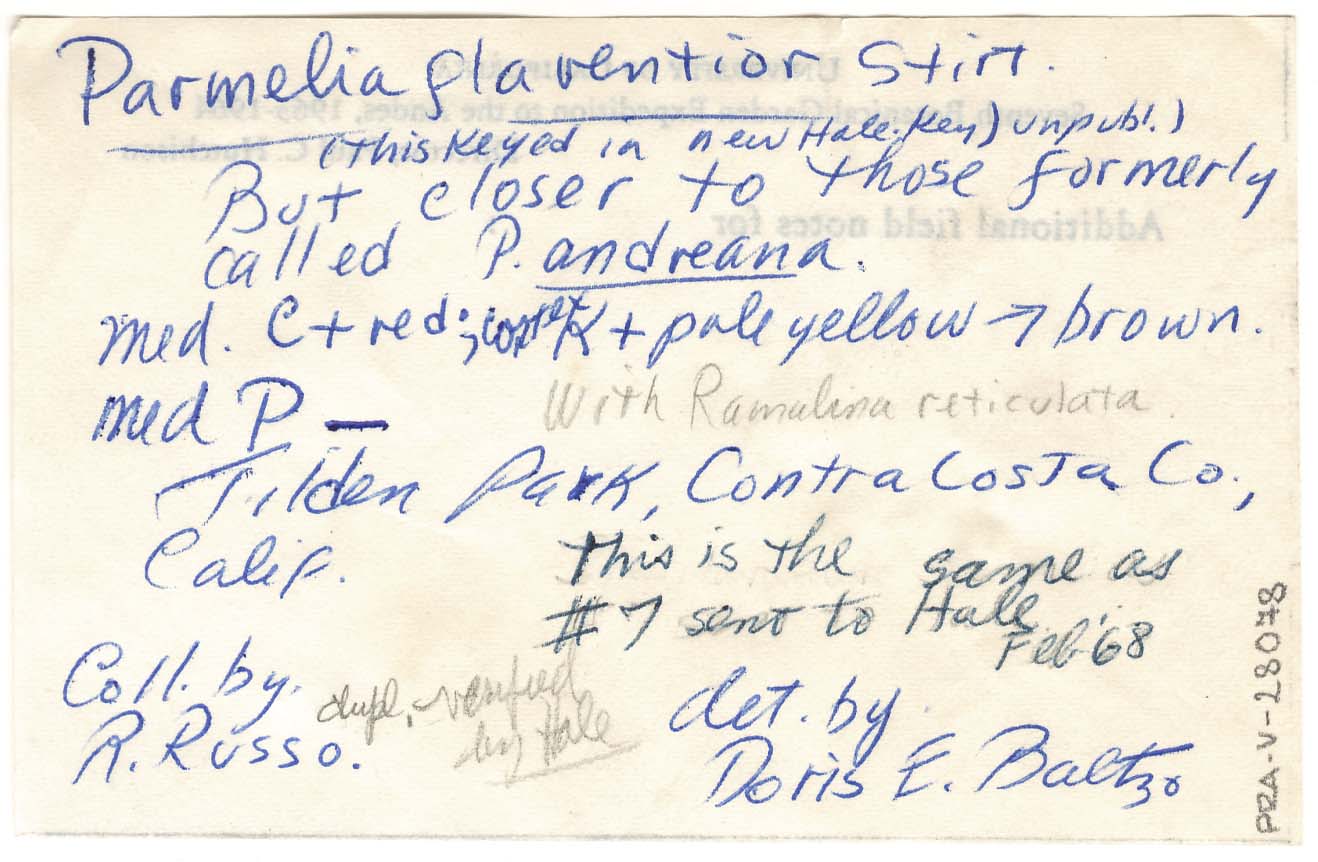 Parmelia flaventior Stirt.
(this keyed in new Hale key) unpubl.)
But closer to those formerly
called P. andreana.
med. C+ red; cortex K + pale yellow → brown.
med P —
With Ramalina reticulata.
Tilden Park, Contra Costa Co.,
Calif.
This is the same as
#7 sent to Hale
Feb '68
Coll. by.
R. Russo.
dupl. - verified
by Hale
det. by
Doris E. Baltzo
PRA-V-28078
Additional field notes for